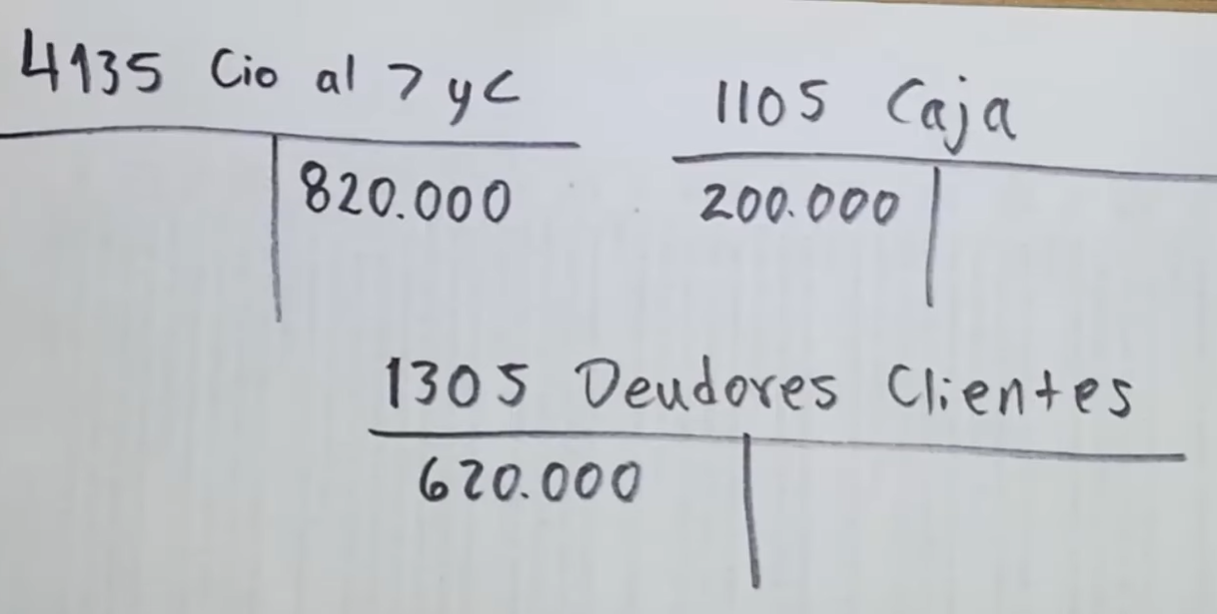 4135 Cio al > y <
820.000
1105 Caja
200.000
1305 Deudores Clientes
620.000